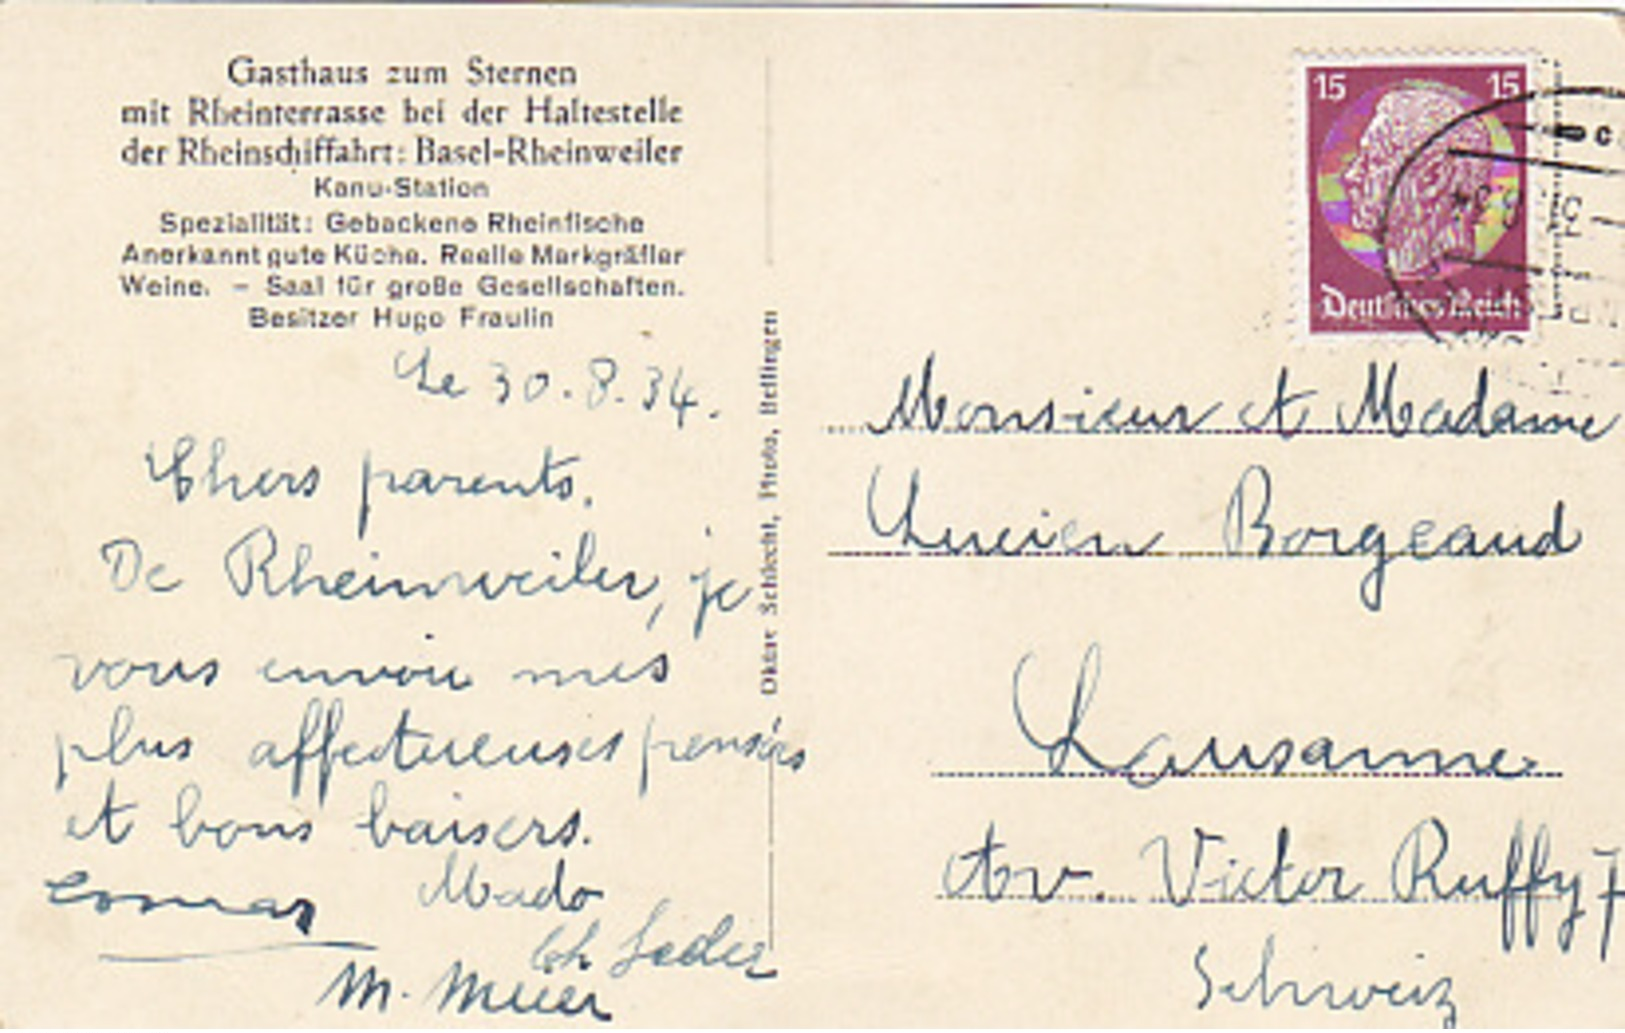 Gasthaus zum Sternen
mit Rheinterrasse bei der Haltestelle
der Rheinschiffahrt: Basel-Rheinweiler
Kanu-Station
Spezialität: Gebackene Rheinfische
Anerkannt gute Küche. Reelle Markgräfler
Weine. – Saal für große Gesellschaften.
Besitzer Hugo Fraulin
Le 30.8.34.
Chers parents.
De Rheinweiler, je
vous envoie mes
plus affectueuses pensées
et bons baisers.
Mado
M. Meier
Schlecht, Photo, Bellingen
15 15
Deutsches Reich
Monsieur et Madame
Lucien Borgeaud
Lausanne
Av. Victor Ruffy 7
Schweiz